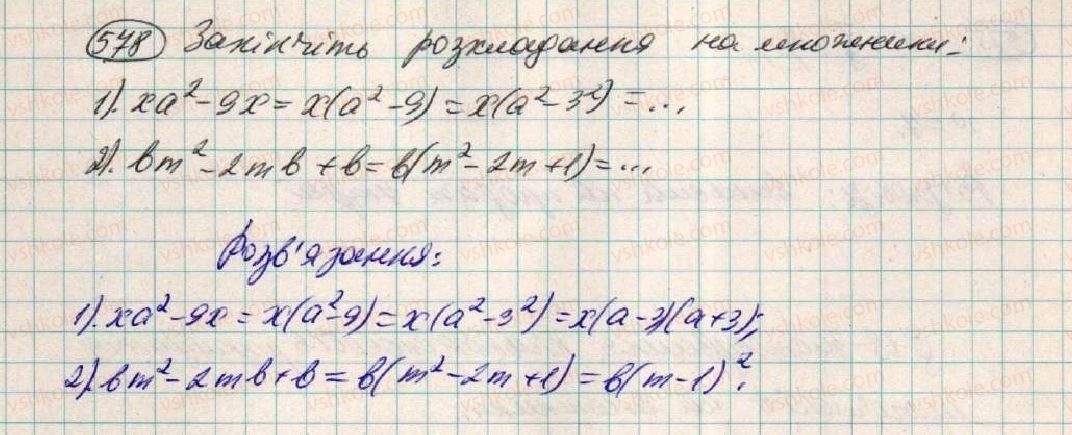 578 Закінчіть розкладання на множники:
1). xa² - 9x = x(a² - 9) = x(a² - 3²) = ...
2). bm² - 2mb + b = b(m² - 2m + 1) = ...
Розв'язання:
1). xa² - 9x = x(a² - 9) = x(a² - 3²) = x(a - 3)(a + 3);
2). bm² - 2mb + b = b(m² - 2m + 1) = b(m - 1)².